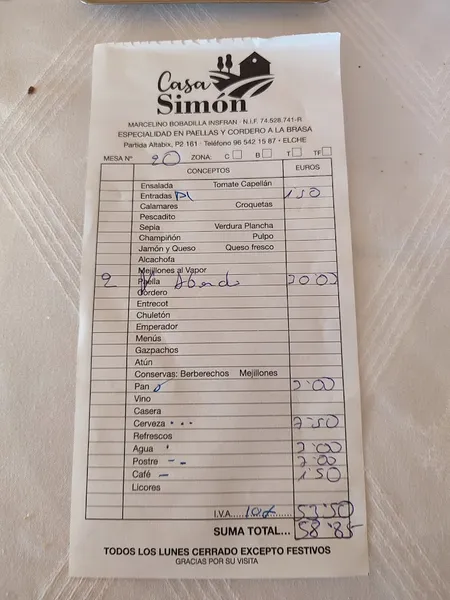 Casa
Simón
MARCELINO BOBADILLA INSFRAN · N.I.F. 74.528.741-R
ESPECIALIDAD EN PAELLAS Y CORDERO A LA BRASA
Partida Altabix, P2 161 · Teléfono 96 542 15 87 · ELCHE
MESA Nº 20 ZONA: C B T TF
CONCEPTOS EUROS
Ensalada Tomate Capellán
Entradas 1'50
Calamares Croquetas
Pescadito
Sepia Verdura Plancha
Champiñón Pulpo
Jamón y Queso Queso fresco
Alcachofa
Mejillones al Vapor
2 Paella
Cordero
Entrecot
Chuletón
Emperador
Menús
Gazpachos
Atún
Conservas: Berberechos Mejillones
Pan
Vino
Casera
Cerveza 7'50
Refrescos
Agua
Postre
Café 1'50
Licores
I.V.A. 53'50
SUMA TOTAL... 58'85
TODOS LOS LUNES CERRADO EXCEPTO FESTIVOS
GRACIAS POR SU VISITA